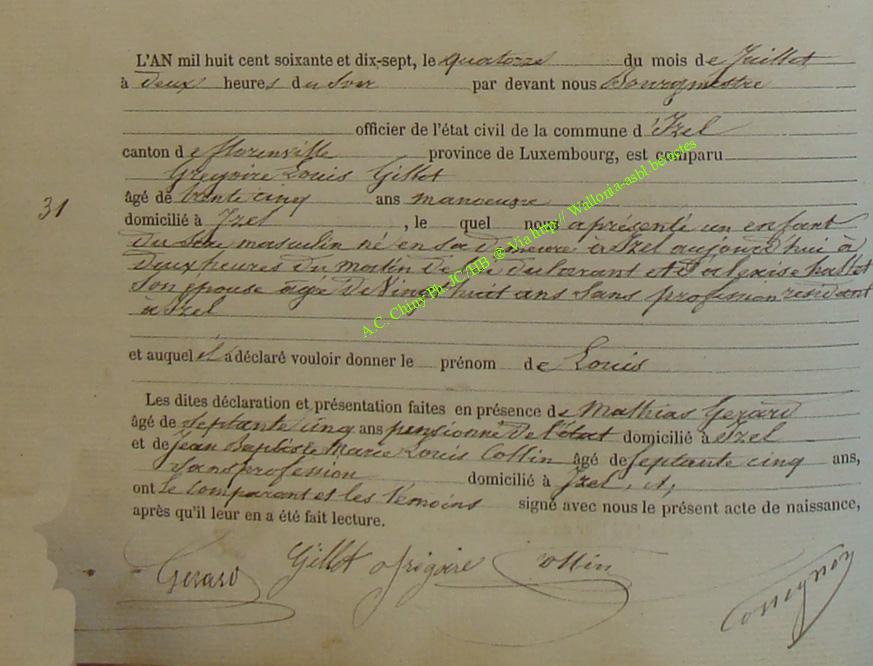 L'AN mil huit cent soixante et dix-sept, le quatorze du mois de Juillet
à deux heures du soir par devant nous Bourgmestre
officier de l'état civil de la commune d'Izel
canton de florenville province de Luxembourg, est comparu
Grégoire Louis Gillot
âgé de trente cinq ans manoeuvre
31
domicilié à Izel, le quel nous a présenté un enfant
du sexe masculin né en sa demeure à Izel aujourd'hui à
deux heures du matin de lui déclarant et d'alexise hallet
son épouse agée de Vingt huit ans sans profession residant
à Izel
et auquel il a déclaré vouloir donner le prénom de Louis
Les dites déclaration et présentation faites en présence de Mathias Gerard
âgé de septante cinq ans pensionné de l'état domicilié à Izel
et de Jean Baptiste Marie Louis Collin âgé de septante cinq ans,
sans profession domicilié à Izel, et,
ont le comparant et les témoins signé avec nous le présent acte de naissance,
après qu'il leur en a été fait lecture.
Gerard Gillot grégoire Collin
A.C. Chiny Ph. JC HB @ Via http// Wallonia-asbl.be/actes